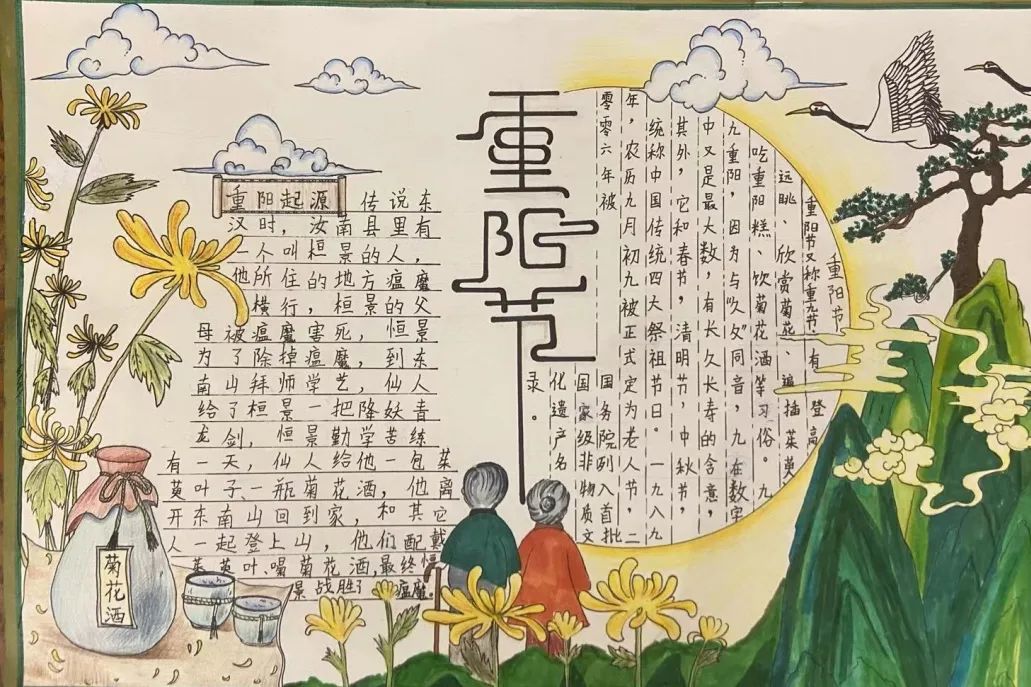 重阳节
重阳起源 传说东
汉时，汝南县里有
一个叫桓景的人，
他所住的地方瘟魔
横行，桓景的父
母被瘟魔害死，恒景
为了除掉瘟魔，到东
南山拜师学艺，仙人
给了桓景一把降妖青
龙剑，恒景勤学苦练
有一天，仙人给他一包茱
萸叶子、一瓶菊花酒，他离
开东南山回到家，和其它
人一起登上山，他们配戴
茱萸叶、喝菊花酒，最终恒
景战胜了瘟魔。
重阳节
重阳节又称重九节，有登高
远眺、欣赏菊花、遍插茱萸
吃重阳糕、饮菊花酒等习俗。九
九重阳，因为与“久久”同音，九在数字
中又是最大数，有长久长寿的含意，
其外，它和春节，清明节，中秋节，
统称中国传统四大祭祖节日。一九八九
年，农历九月初九被正式定为老人节，二
零零六年被国务院列入首批
国家级非物质文
化遗产名
录。
菊花酒